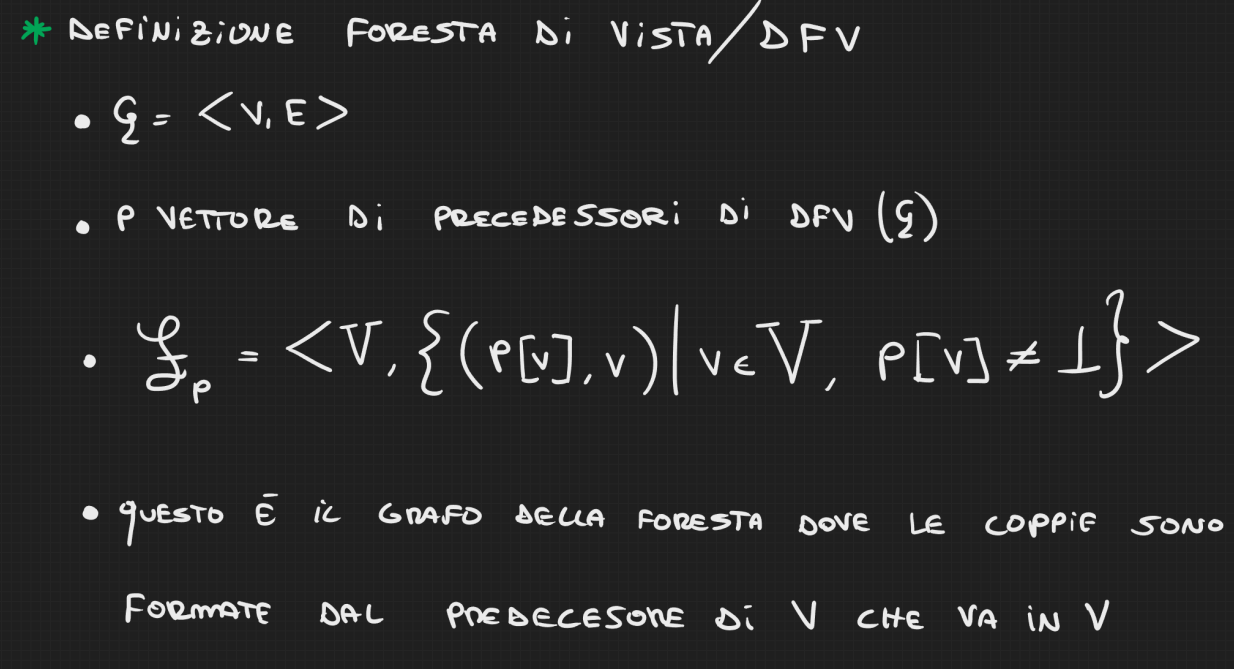 * DEFINIZIONE FORESTA DI VISTA/DFV
• G = <V, E>
• P VETTORE DI PRECEDESSORI DI DFV (G)
• ℱₚ = <V, {(P[v], v) | v ∈ V, P[v] ≠ ⊥}>
• QUESTO È IL GRAFO DELLA FORESTA DOVE LE COPPIE SONO
FORMATE DAL PREDECESORE DI V CHE VA IN V